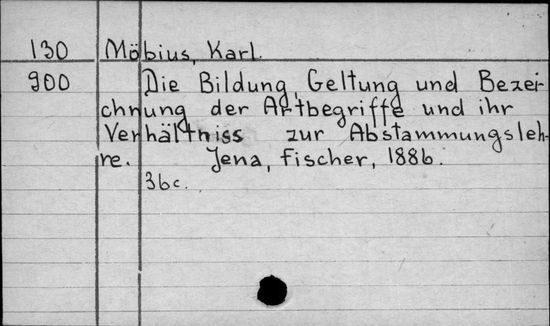 130 Möbius, Karl.
900 Die Bildung, Geltung und Bezei-
chnung der Artbegriffe und ihr
Verhältniss zur Abstammungsleh-
re. Jena, Fischer, 1886.
36c.